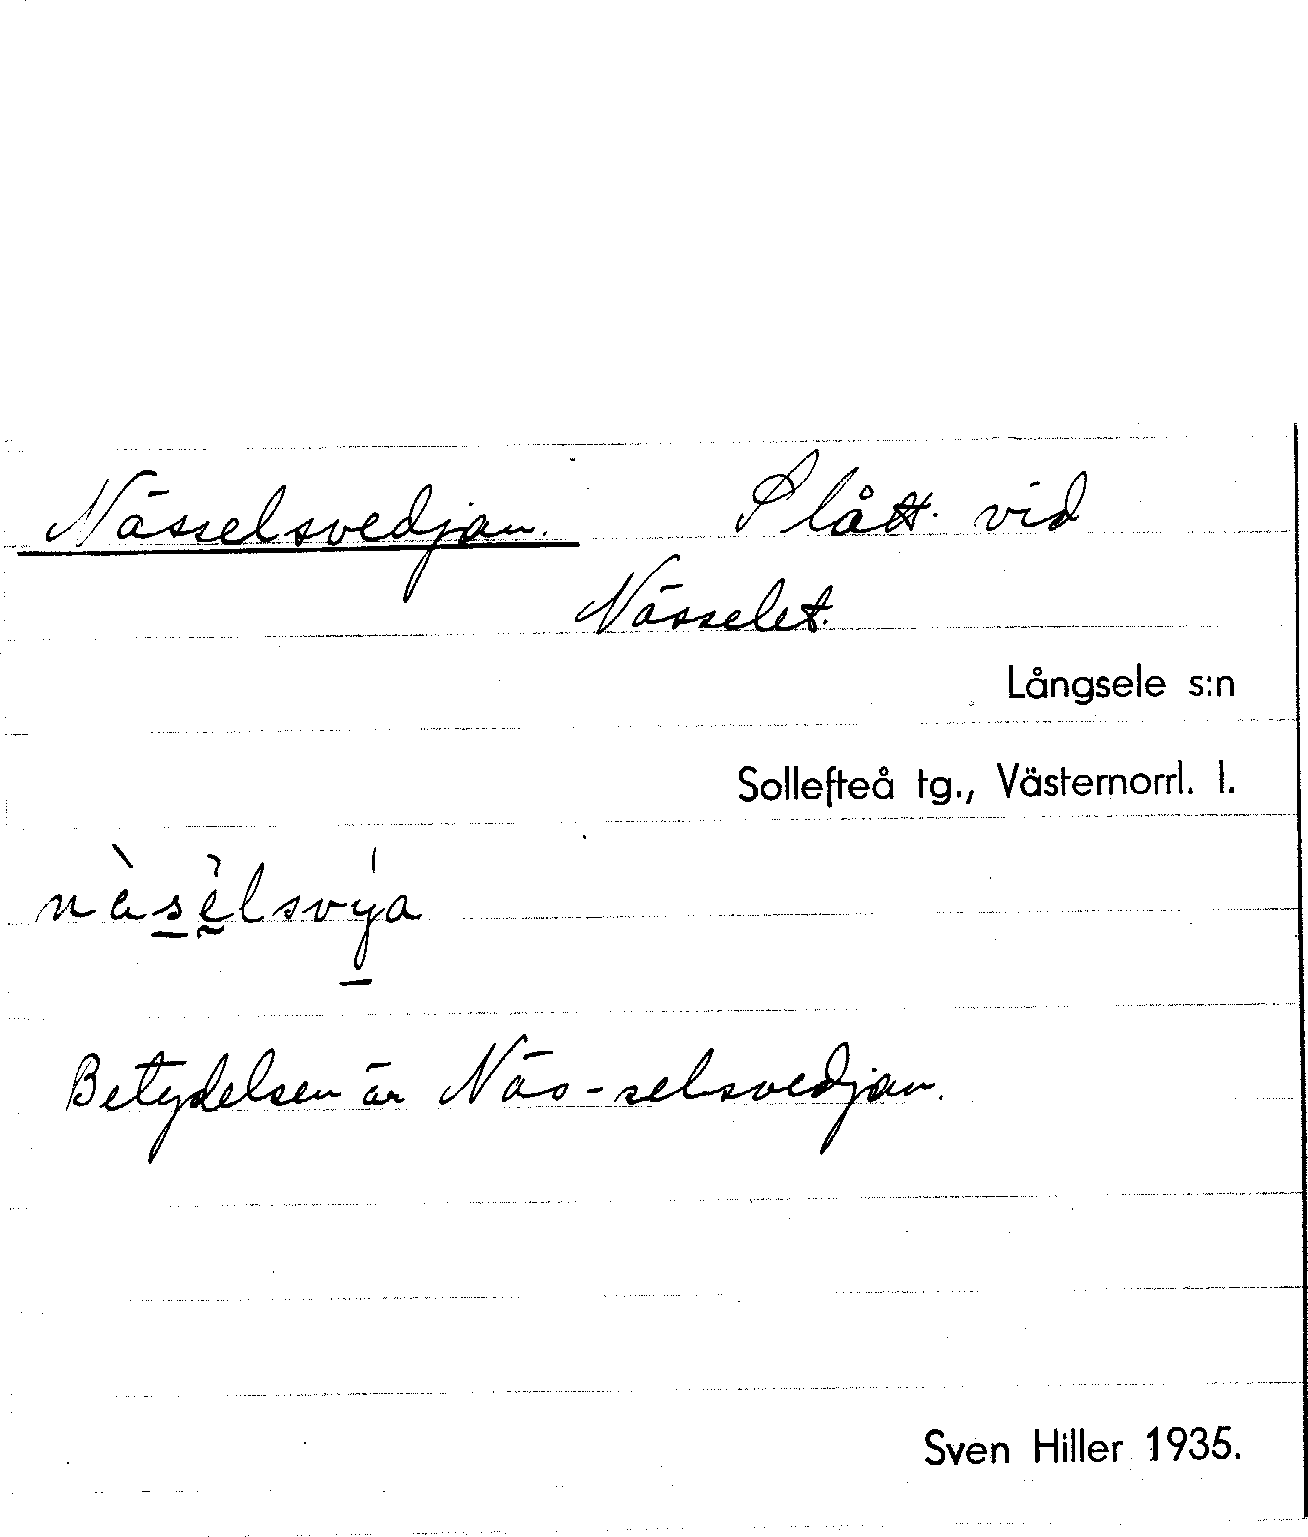 Nässelsvedjan. Slått vid
Nässelet.
Långsele s:n
Sollefteå tg., Västernorrl. l.
nàsèlsvýa
Betydelsen är Näs-selsvedjan.
Sven Hiller 1935.